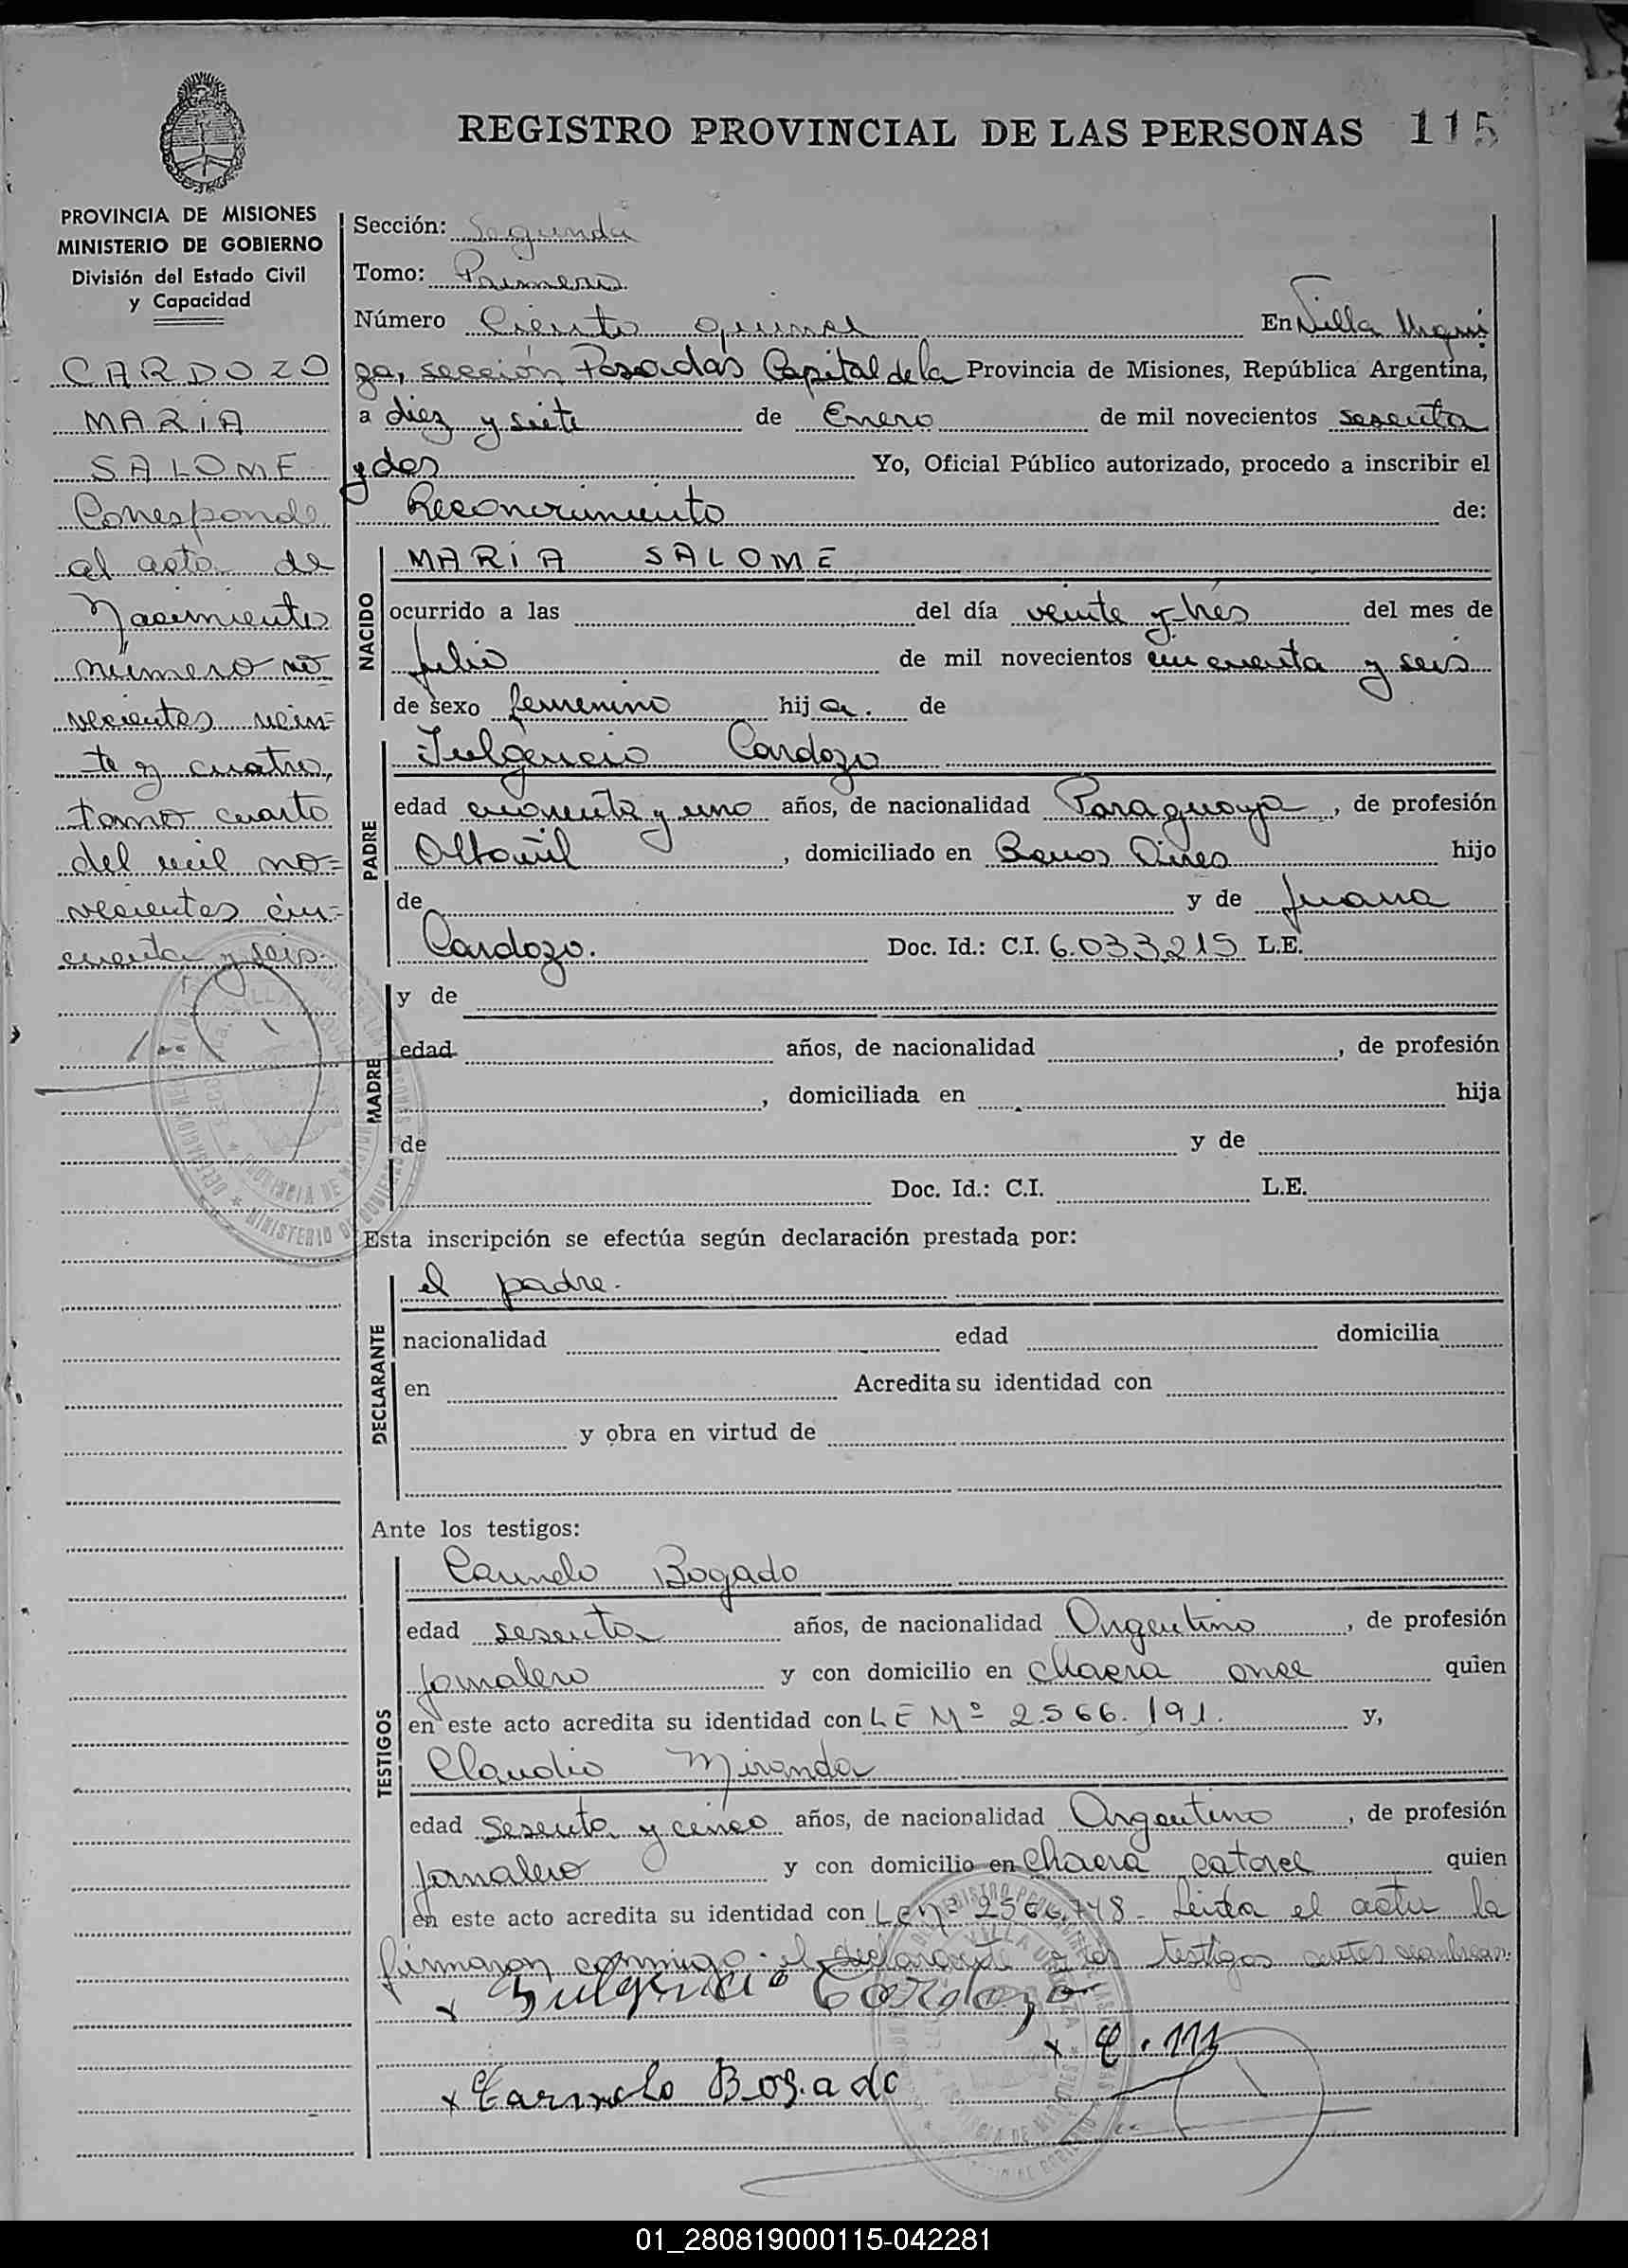 REGISTRO PROVINCIAL DE LAS PERSONAS 115
PROVINCIA DE MISIONES
MINISTERIO DE GOBIERNO
División del Estado Civil
y Capacidad
CARDOZO
MARÍA
SALOME
Corresponde
al acta de
Nacimiento
número no
vecientos vein=
te y cuatro,
tomo cuarto
del mil no=
vecientos cin=
cuenta y seis.
Sección: Segunda
Tomo: Primero
Número Ciento quince En Villa Urqui
za, sección Posadas Capital de la Provincia de Misiones, República Argentina,
a diez y siete de Enero de mil novecientos sesenta
y dos Yo, Oficial Público autorizado, procedo a inscribir el
Reconocimiento de:
NACIDO
MARÍA SALOME
ocurrido a las del día veinte y tres del mes de
Julio de mil novecientos cincuenta y seis
de sexo femenino hija. de
PADRE
Fulgencio Cardozo
edad cincuenta y uno años, de nacionalidad Paraguaya, de profesión
Albañil, domiciliado en Buenos Aires hijo
de y de Juana
Cardozo. Doc. Id.: C.I. 6.033.215 L.E.
MADRE
y de
edad años, de nacionalidad , de profesión
, domiciliada en hija
de y de
Doc. Id.: C.I. L.E.
Esta inscripción se efectúa según declaración prestada por:
DECLARANTE
el padre.
nacionalidad edad domicilia
en Acredita su identidad con
y obra en virtud de
Ante los testigos:
TESTIGOS
Carmelo Bogado
edad sesenta años, de nacionalidad Argentino, de profesión
Jornalero y con domicilio en chacra once quien
en este acto acredita su identidad con L E Nº 2.566.191. y,
Claudio Miranda
edad sesenta y cinco años, de nacionalidad Argentino, de profesión
Jornalero y con domicilio en chacra catorce quien
en este acto acredita su identidad con L e nº 2566.748 - Leída el acta la
firmaron conmigo el declarante y los testigos antes
x Fulgencio Cardozo
x Carmelo Bogado
01_280819000115-042281